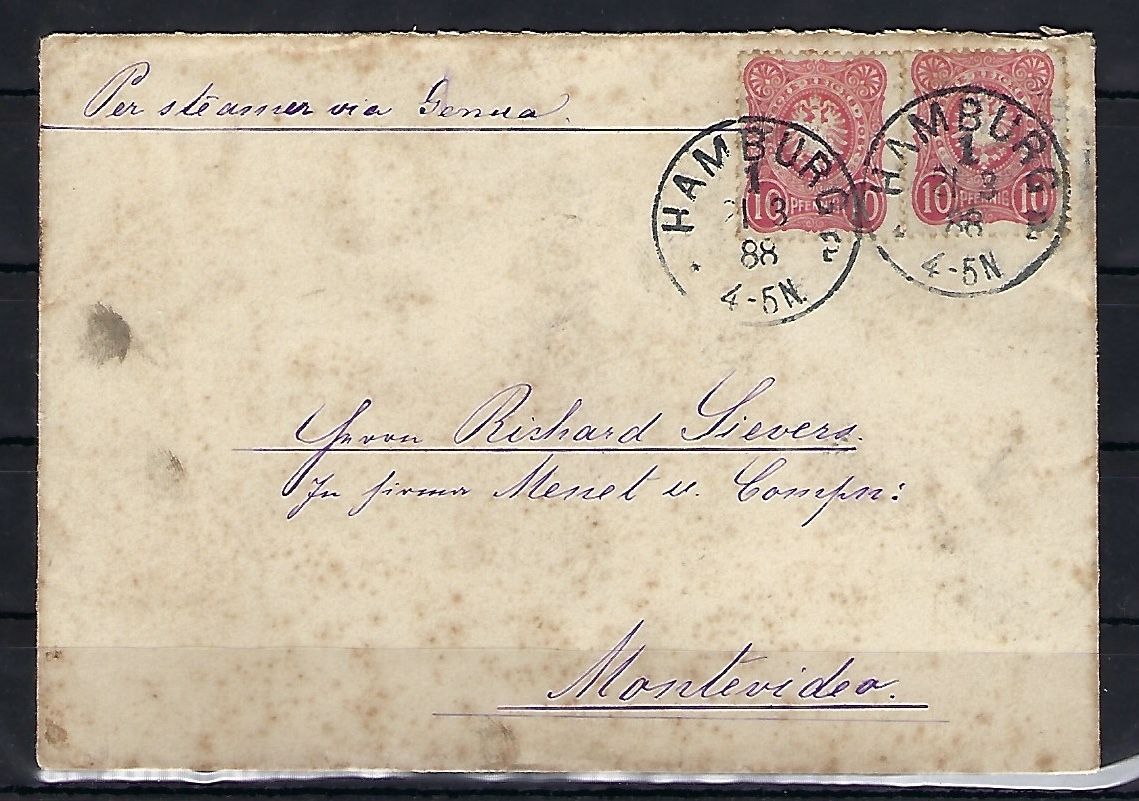 Per steamer via Genua.
REICHS
10 PFENNIG 10
REICHS
10 PFENNIG 10
HAMBURG
1.
1 3
88
4-5N.
HAMBURG
1.
21 3
88
4-5N
Herrn Richard Sievers.
In firma Menet u. Compn:
Montevideo.